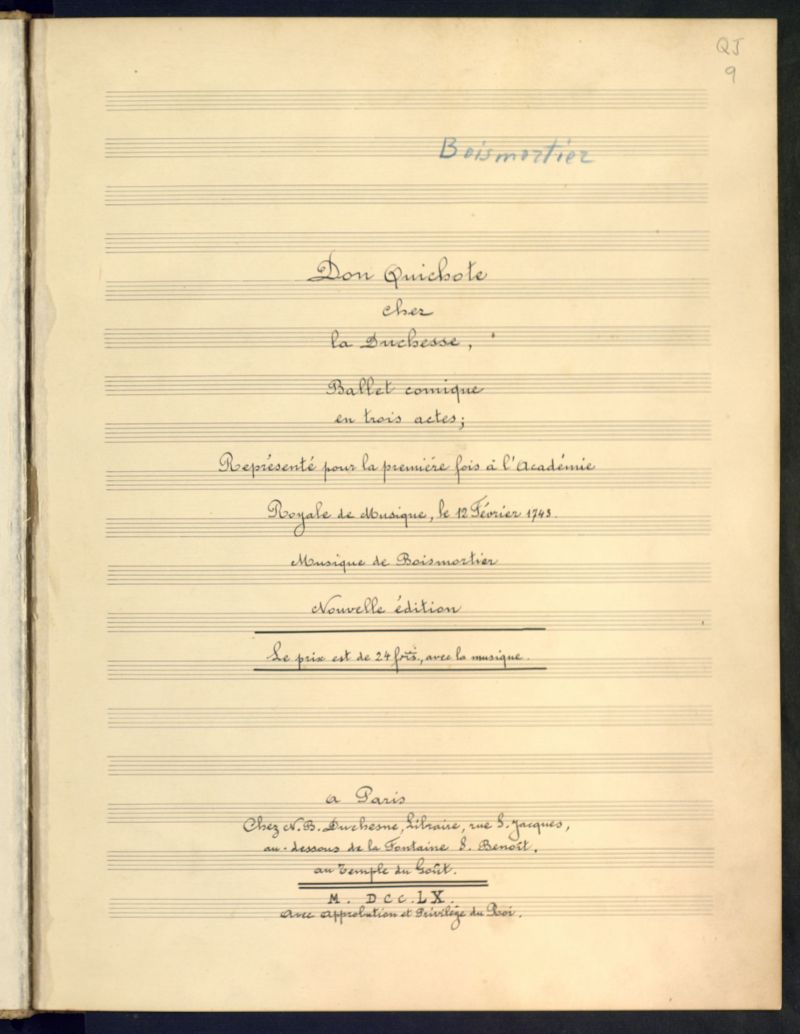 QJ
9
Boismortier
Don Quichote
chez
la Duchesse,
Ballet comique
en trois actes;
Représenté pour la première fois à l'Académie
Royale de Musique, le 12 Février 1743.
Musique de Boismortier
Nouvelle édition
Le prix est de 24 sols, avec la musique.
a Paris
Chez N. B. Duchesne, Libraire, rue S. Jacques,
au-dessous de la Fontaine S. Benoît,
au Temple du Goût.
M. DCC. LX.
Avec Approbation et Privilège du Roi.